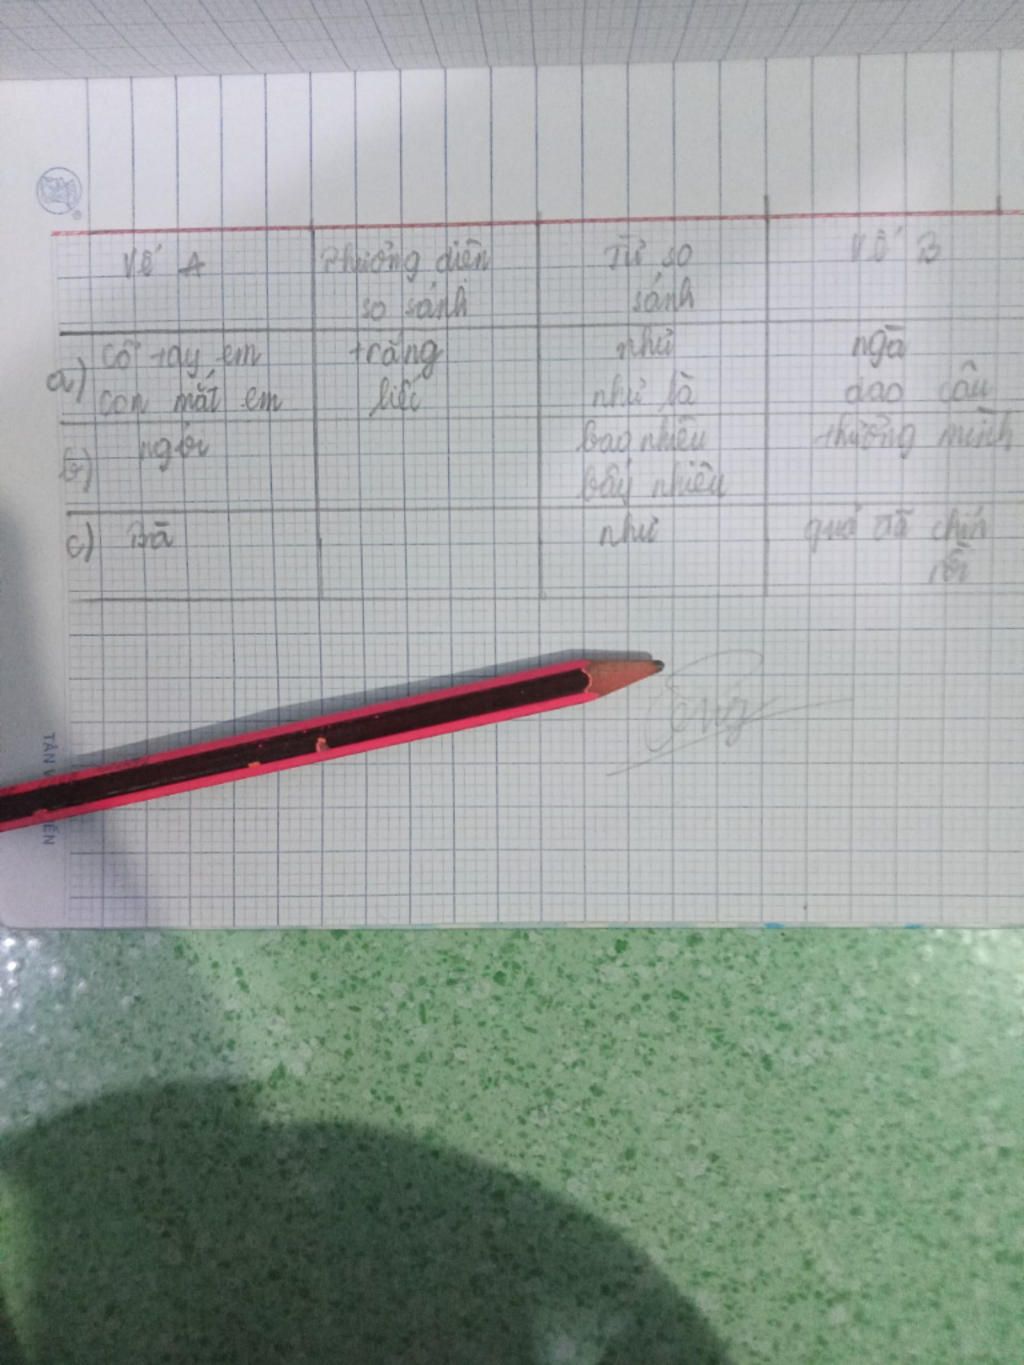 Vế A Phương diện Từ so Vế B
so sánh sánh
a) cổ tay em trắng như ngà
con mắt em liếc như là dao cau
b) ngói bao nhiêu thương mình
bấy nhiêu
c) Bà như quả đã chín
rồi
TÂN